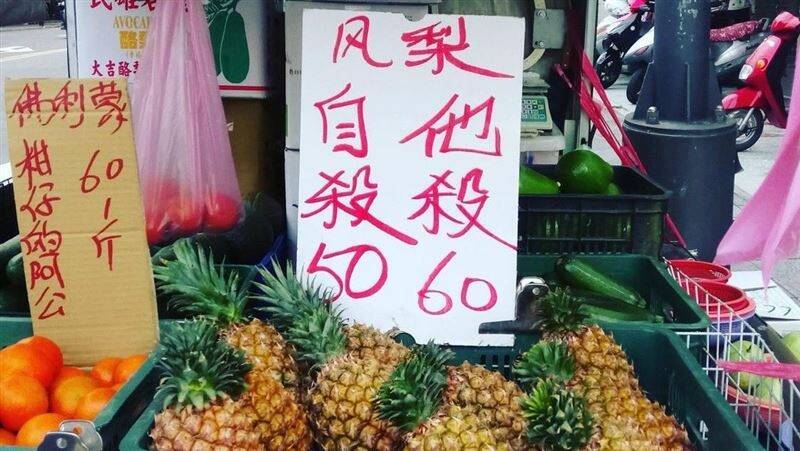 AVOCA
酪
大吉酪
佛利蒙
柑仔的阿公
60 1斤
风梨
自殺 50
他殺 60